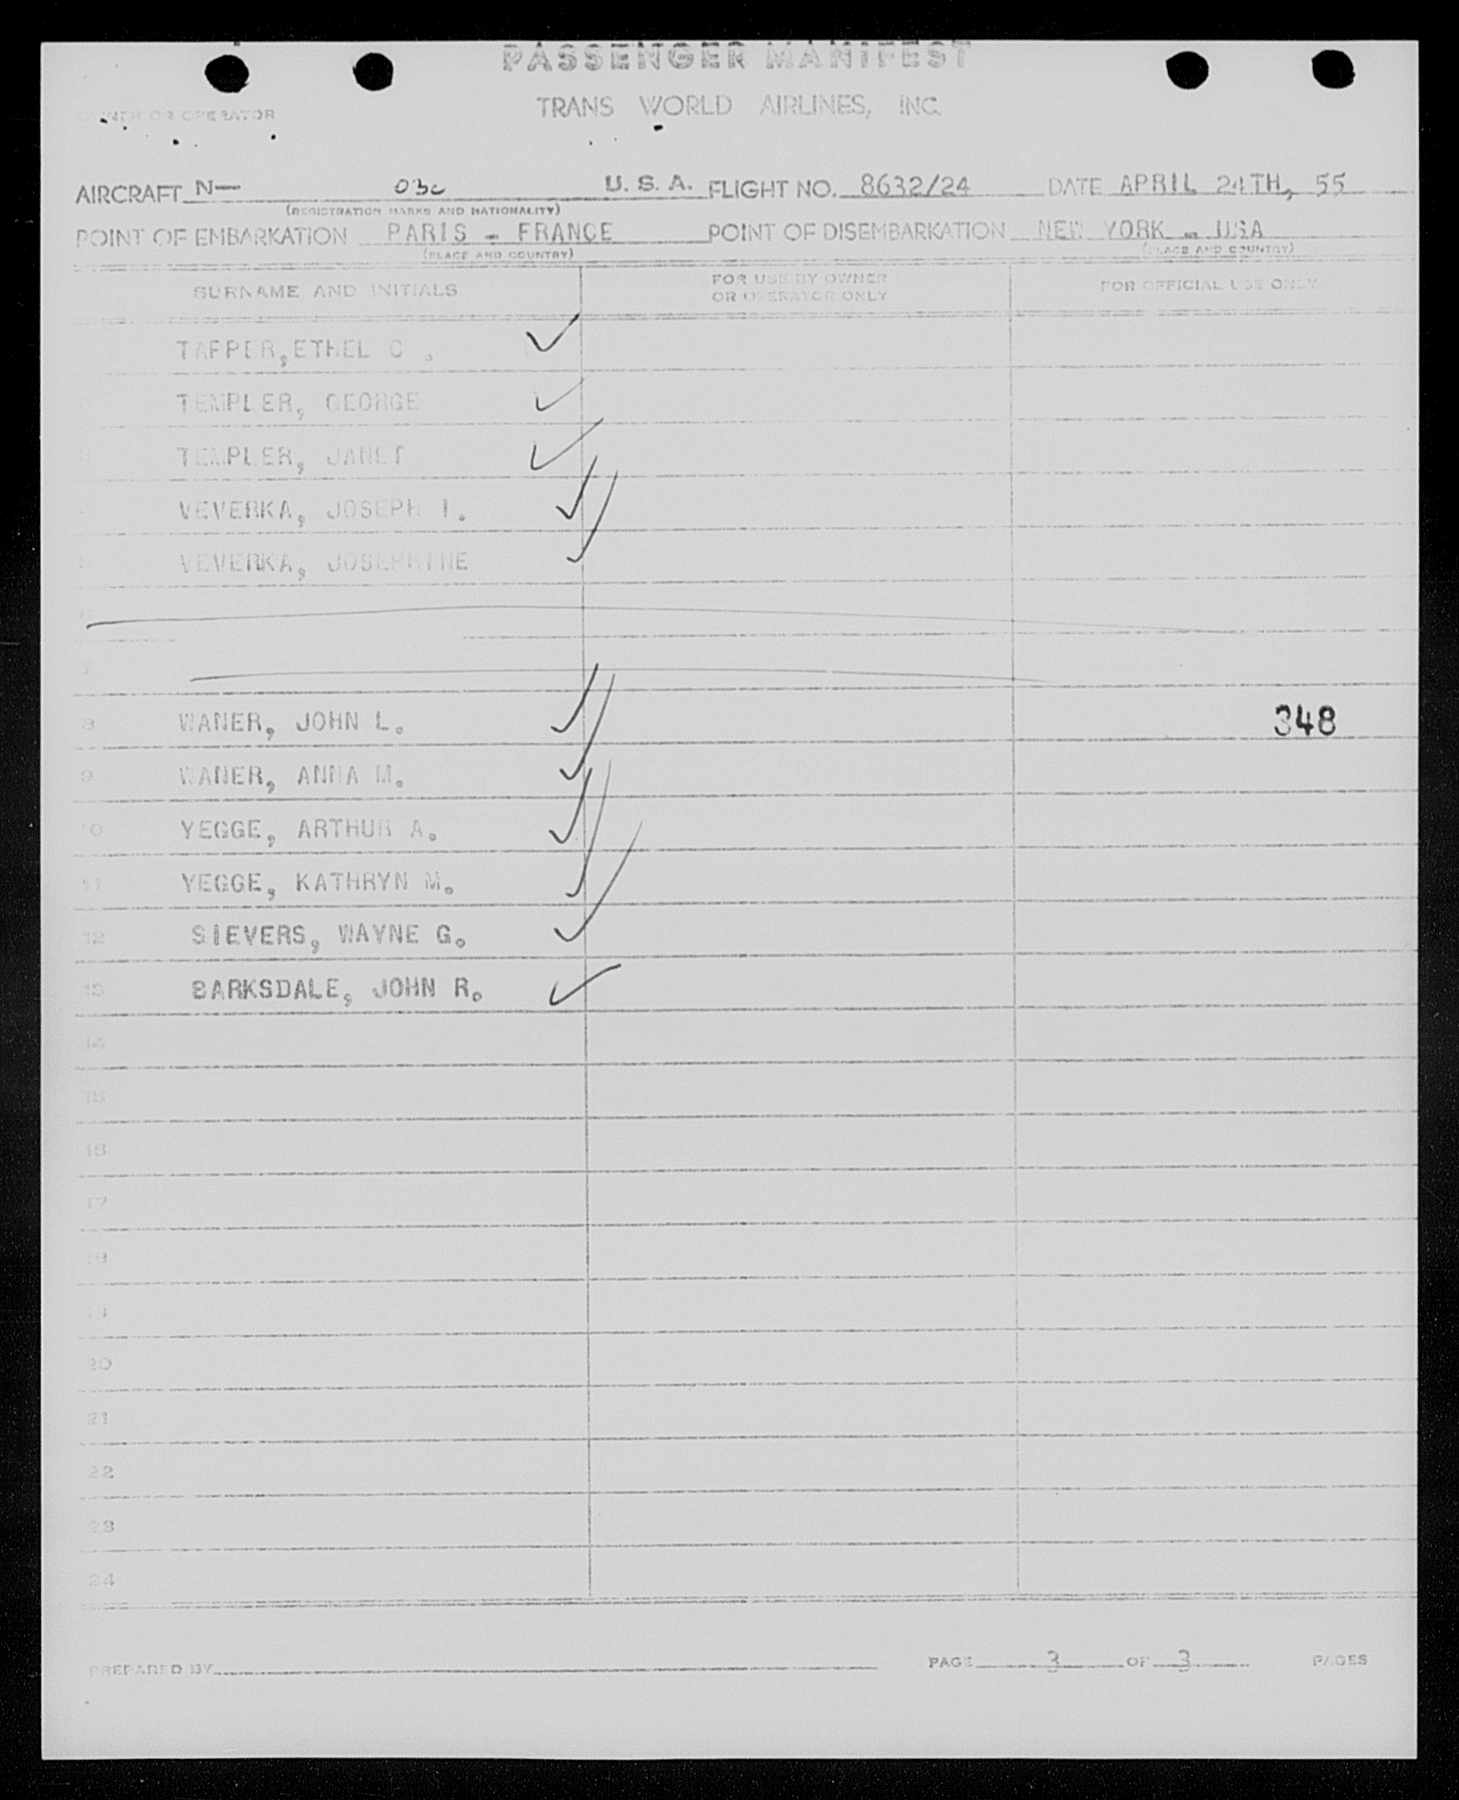 PASSENGER MANIFEST
OWNER OR OPERATOR TRANS WORLD AIRLINES, INC.
AIRCRAFT N— 03c U. S. A. FLIGHT NO. 8632/24 DATE APRIL 24TH, 55
(REGISTRATION MARKS AND NATIONALITY)
POINT OF EMBARKATION PARIS - FRANCE POINT OF DISEMBARKATION NEW YORK - USA
(PLACE AND COUNTRY) (PLACE AND COUNTRY)
SURNAME AND INITIALS FOR USE BY OWNER OR OPERATOR ONLY FOR OFFICIAL USE ONLY
TAPPER,ETHEL C .
TEMPLER, GEORGE
TEMPLER, JANET
VEVERKA, JOSEPH I.
VEVERKA, JOSEPHINE
6
7
8 WANER, JOHN L. 348
9 WANER, ANNA M.
10 YEGGE, ARTHUR A.
11 YEGGE, KATHRYN M.
12 SIEVERS, WAYNE G.
13 BARKSDALE, JOHN R.
14
15
16
17
18
19
20
21
22
23
24
PREPARED BY PAGE 3 OF 3 PAGES